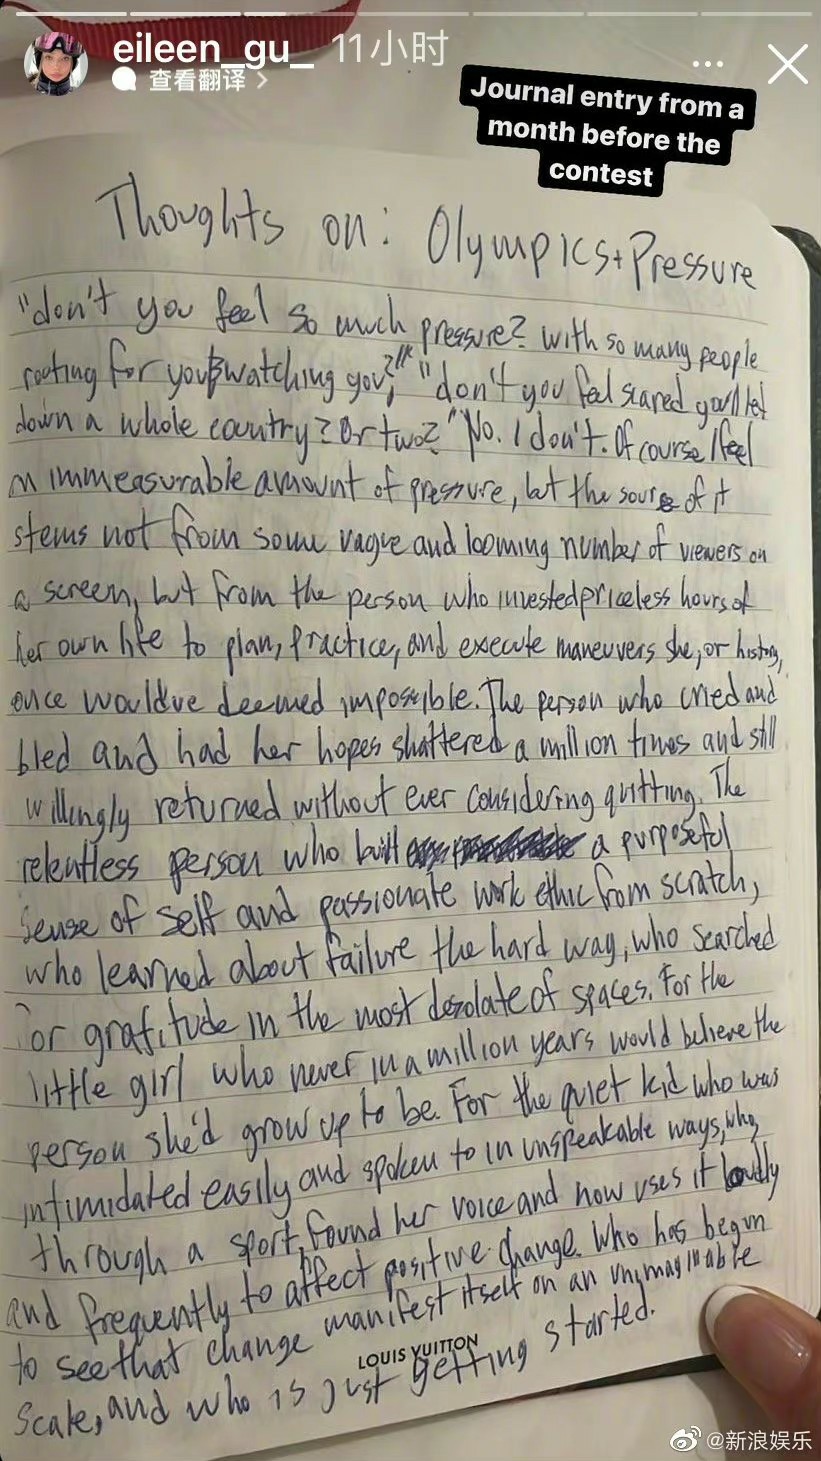 eileen_gu_ 11小时
查看翻译 >
Journal entry from a
month before the
contest
Thoughts on: Olympics + Pressure
"don't you feel so much pressure? with so many people
rooting for you & watching you?" "don't you feel scared you'll let
down a whole country? Or two?" No. I don't. Of course I feel
an immeasurable amount of pressure, but the source of it
stems not from some vague and looming number of viewers on
a screen, but from the person who invested priceless hours of
her own life to plan, practice, and execute maneuvers she, or history,
once would've deemed impossible. The person who cried and
bled and had her hopes shattered a million times and still
willingly returned without ever considering quitting. The
relentless person who built a purposeful
sense of self and passionate work ethic from scratch,
who learned about failure the hard way, who searched
for gratitude in the most desolate of spaces. For the
little girl who never in a million years would believe the
person she'd grow up to be. For the quiet kid who was
intimidated easily and spoken to in unspeakable ways, who,
through a sport, found her voice and now uses it loudly
and frequently to affect positive change. Who has begun
to see that change manifest itself on an unimaginable
scale, and who is just getting started.
LOUIS VUITTON
@新浪娱乐